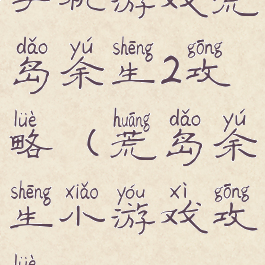 手机游戏荒
dǎo yú shēng gōng
岛余生2攻
lüè huāng dǎo yú
略（荒岛余
shēng xiǎo yóu xì gōng
生小游戏攻
lüè